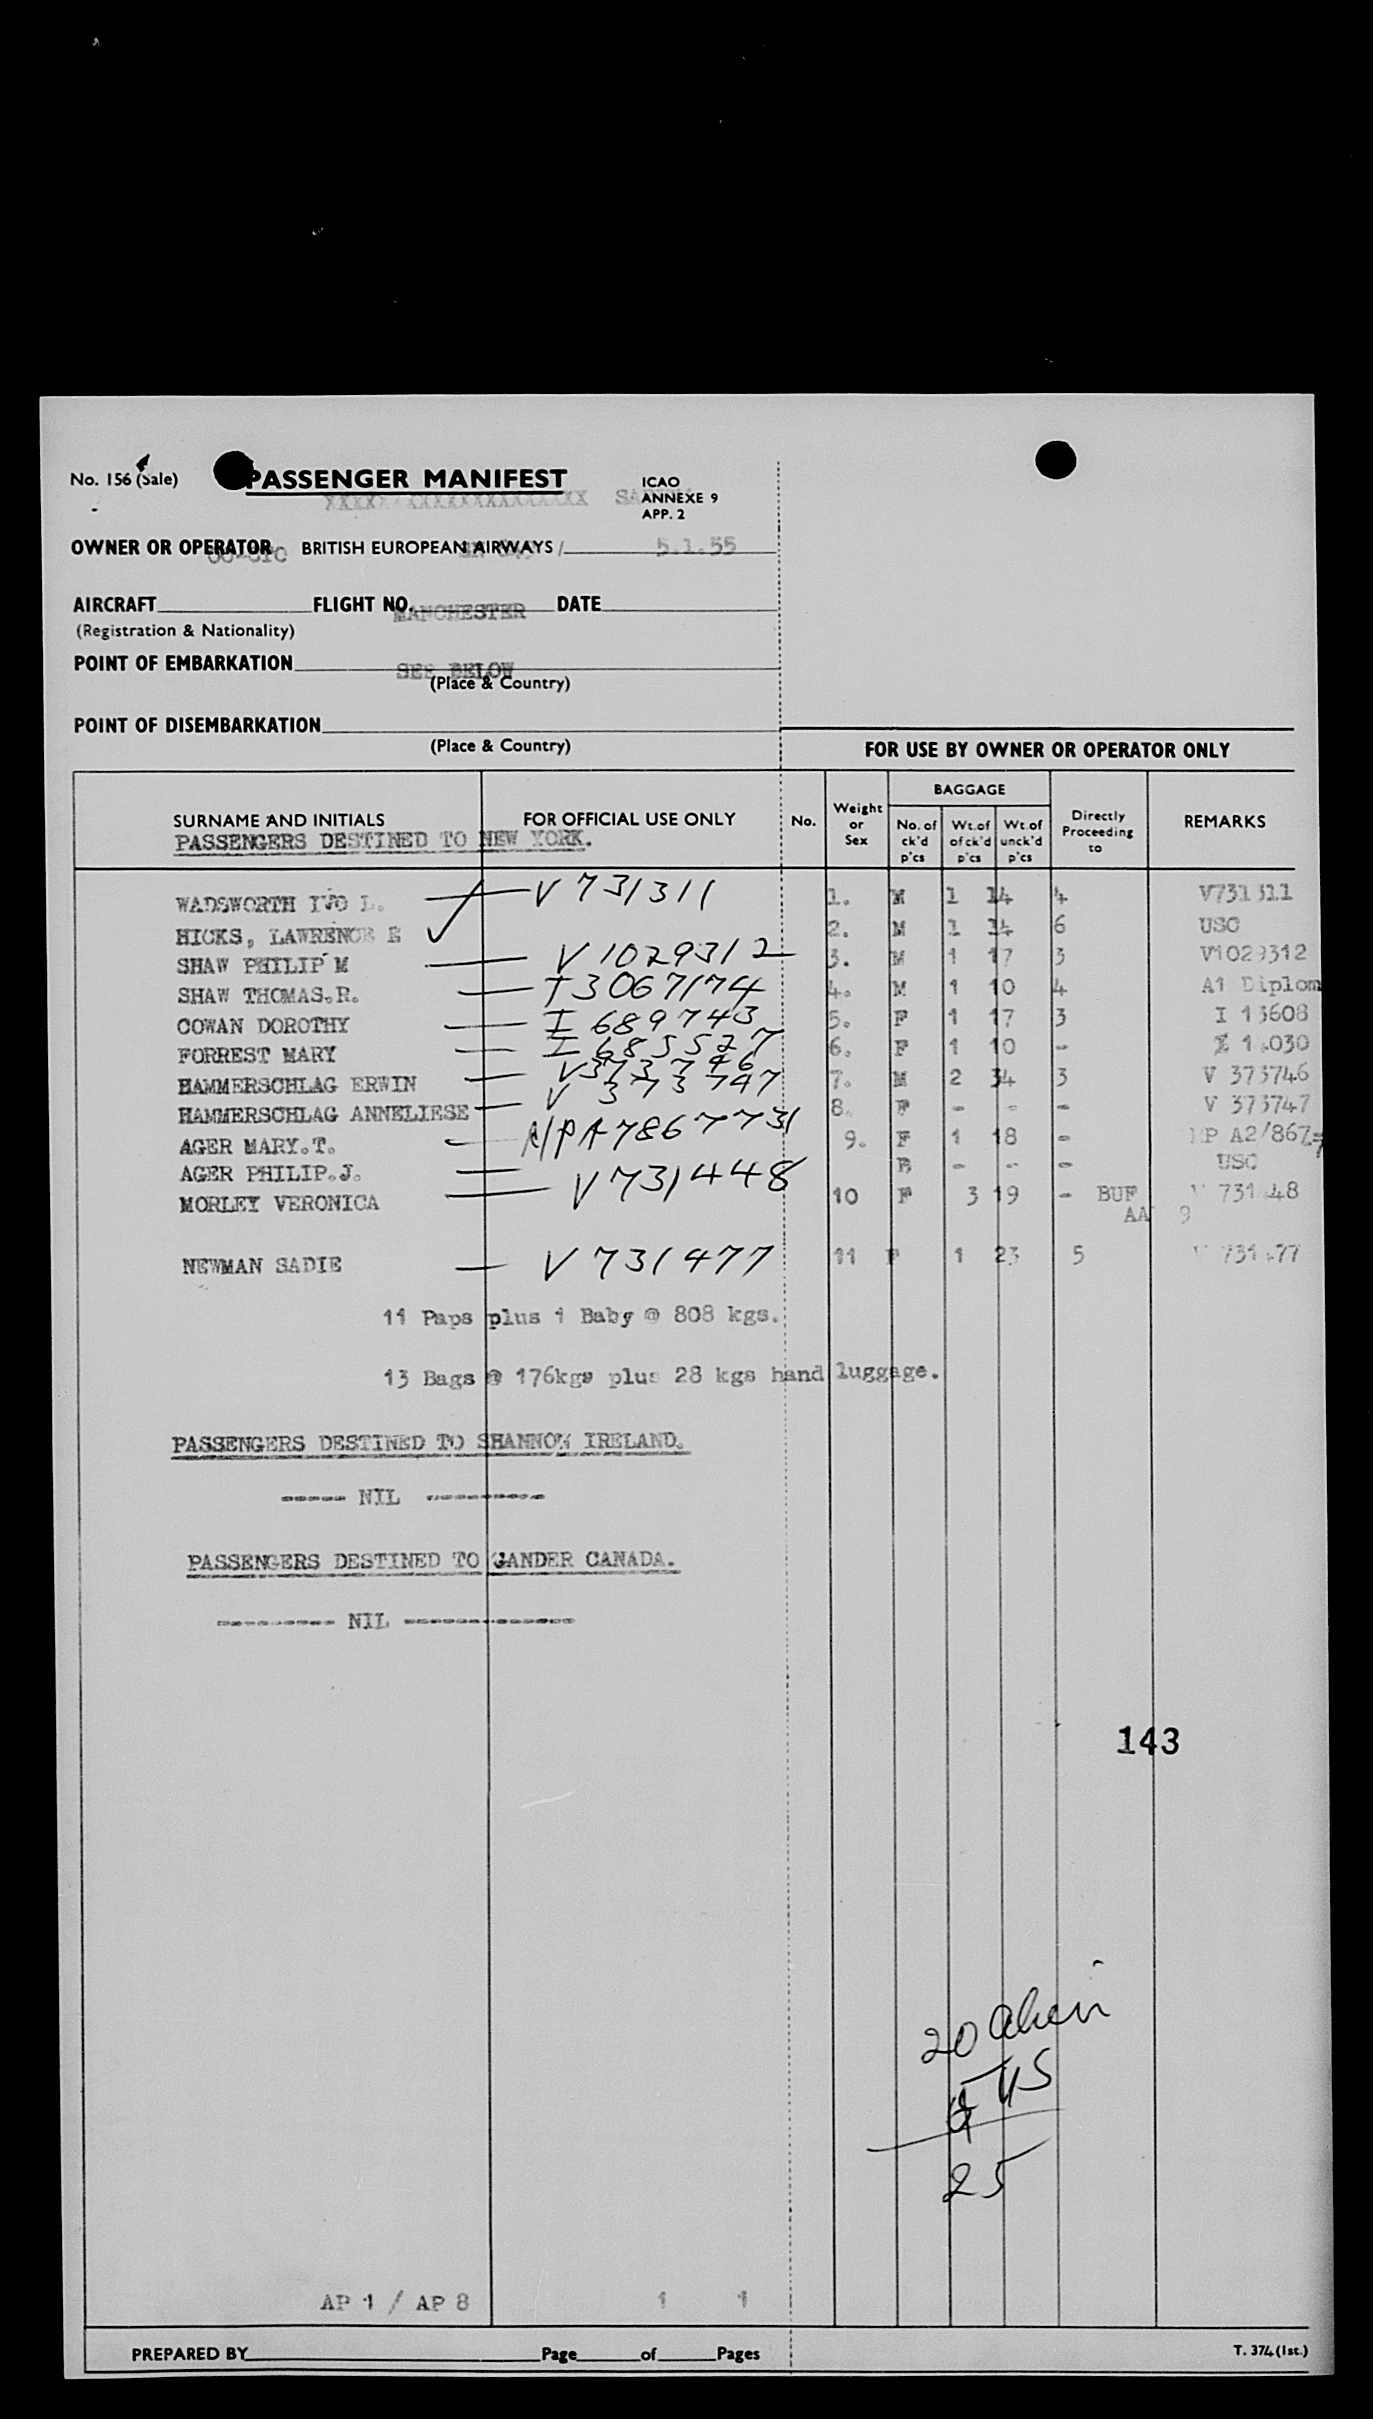 No. 156 (Sale)
PASSENGER MANIFEST
ICAO
ANNEXE 9
APP. 2
OWNER OR OPERATOR BRITISH EUROPEAN AIRWAYS / 5.1.55
AIRCRAFT FLIGHT NO. DATE
MANCHESTER
(Registration & Nationality)
POINT OF EMBARKATION
SEE BELOW
(Place & Country)
POINT OF DISEMBARKATION
(Place & Country)
FOR USE BY OWNER OR OPERATOR ONLY
SURNAME AND INITIALS FOR OFFICIAL USE ONLY No. Weight or Sex BAGGAGE No. of ck'd p'cs Wt. of of ck'd p'cs Wt. of unck'd p'cs Directly Proceeding to REMARKS
PASSENGERS DESTINED TO NEW YORK.
WADSWORTH IVO L. — V731311 1. M 1 14 4 V731311
HICKS, LAWRENCE E ✓ 2. M 1 14 6 USC
SHAW PHILIP M — V1029312 3. M 1 17 3 V1029312
SHAW THOMAS.R. — 3067174 4. M 1 10 4 A1 Diplom
COWAN DOROTHY — I 689743 5. F 1 17 3 I 13608
FORREST MARY — I 685527 6. F 1 10 -
HAMMERSCHLAG ERWIN — V373746 7. M 2 34 3 V 373746
HAMMERSCHLAG ANNELIESE — V 373747 8. F - - - V 373747
AGER MARY.T. — 7867731 9. F 1 18 - A2/867
AGER PHILIP.J. — - - - USC
MORLEY VERONICA — V731448 10 F 3 19 - BUF V 731448
AA 9
NEWMAN SADIE — V731477 11 F 1 23 5 V 731477
11 Paps plus 1 Baby @ 808 kgs.
13 Bags @ 176kgs plus 28 kgs hand luggage.
PASSENGERS DESTINED TO SHANNON IRELAND.
----- NIL ----------
PASSENGERS DESTINED TO GANDER CANADA.
---------- NIL --------------
143
20 alien
5 US
25
AP 1 / AP 8 1 1
PREPARED BY Page of Pages T. 374 (1st.)